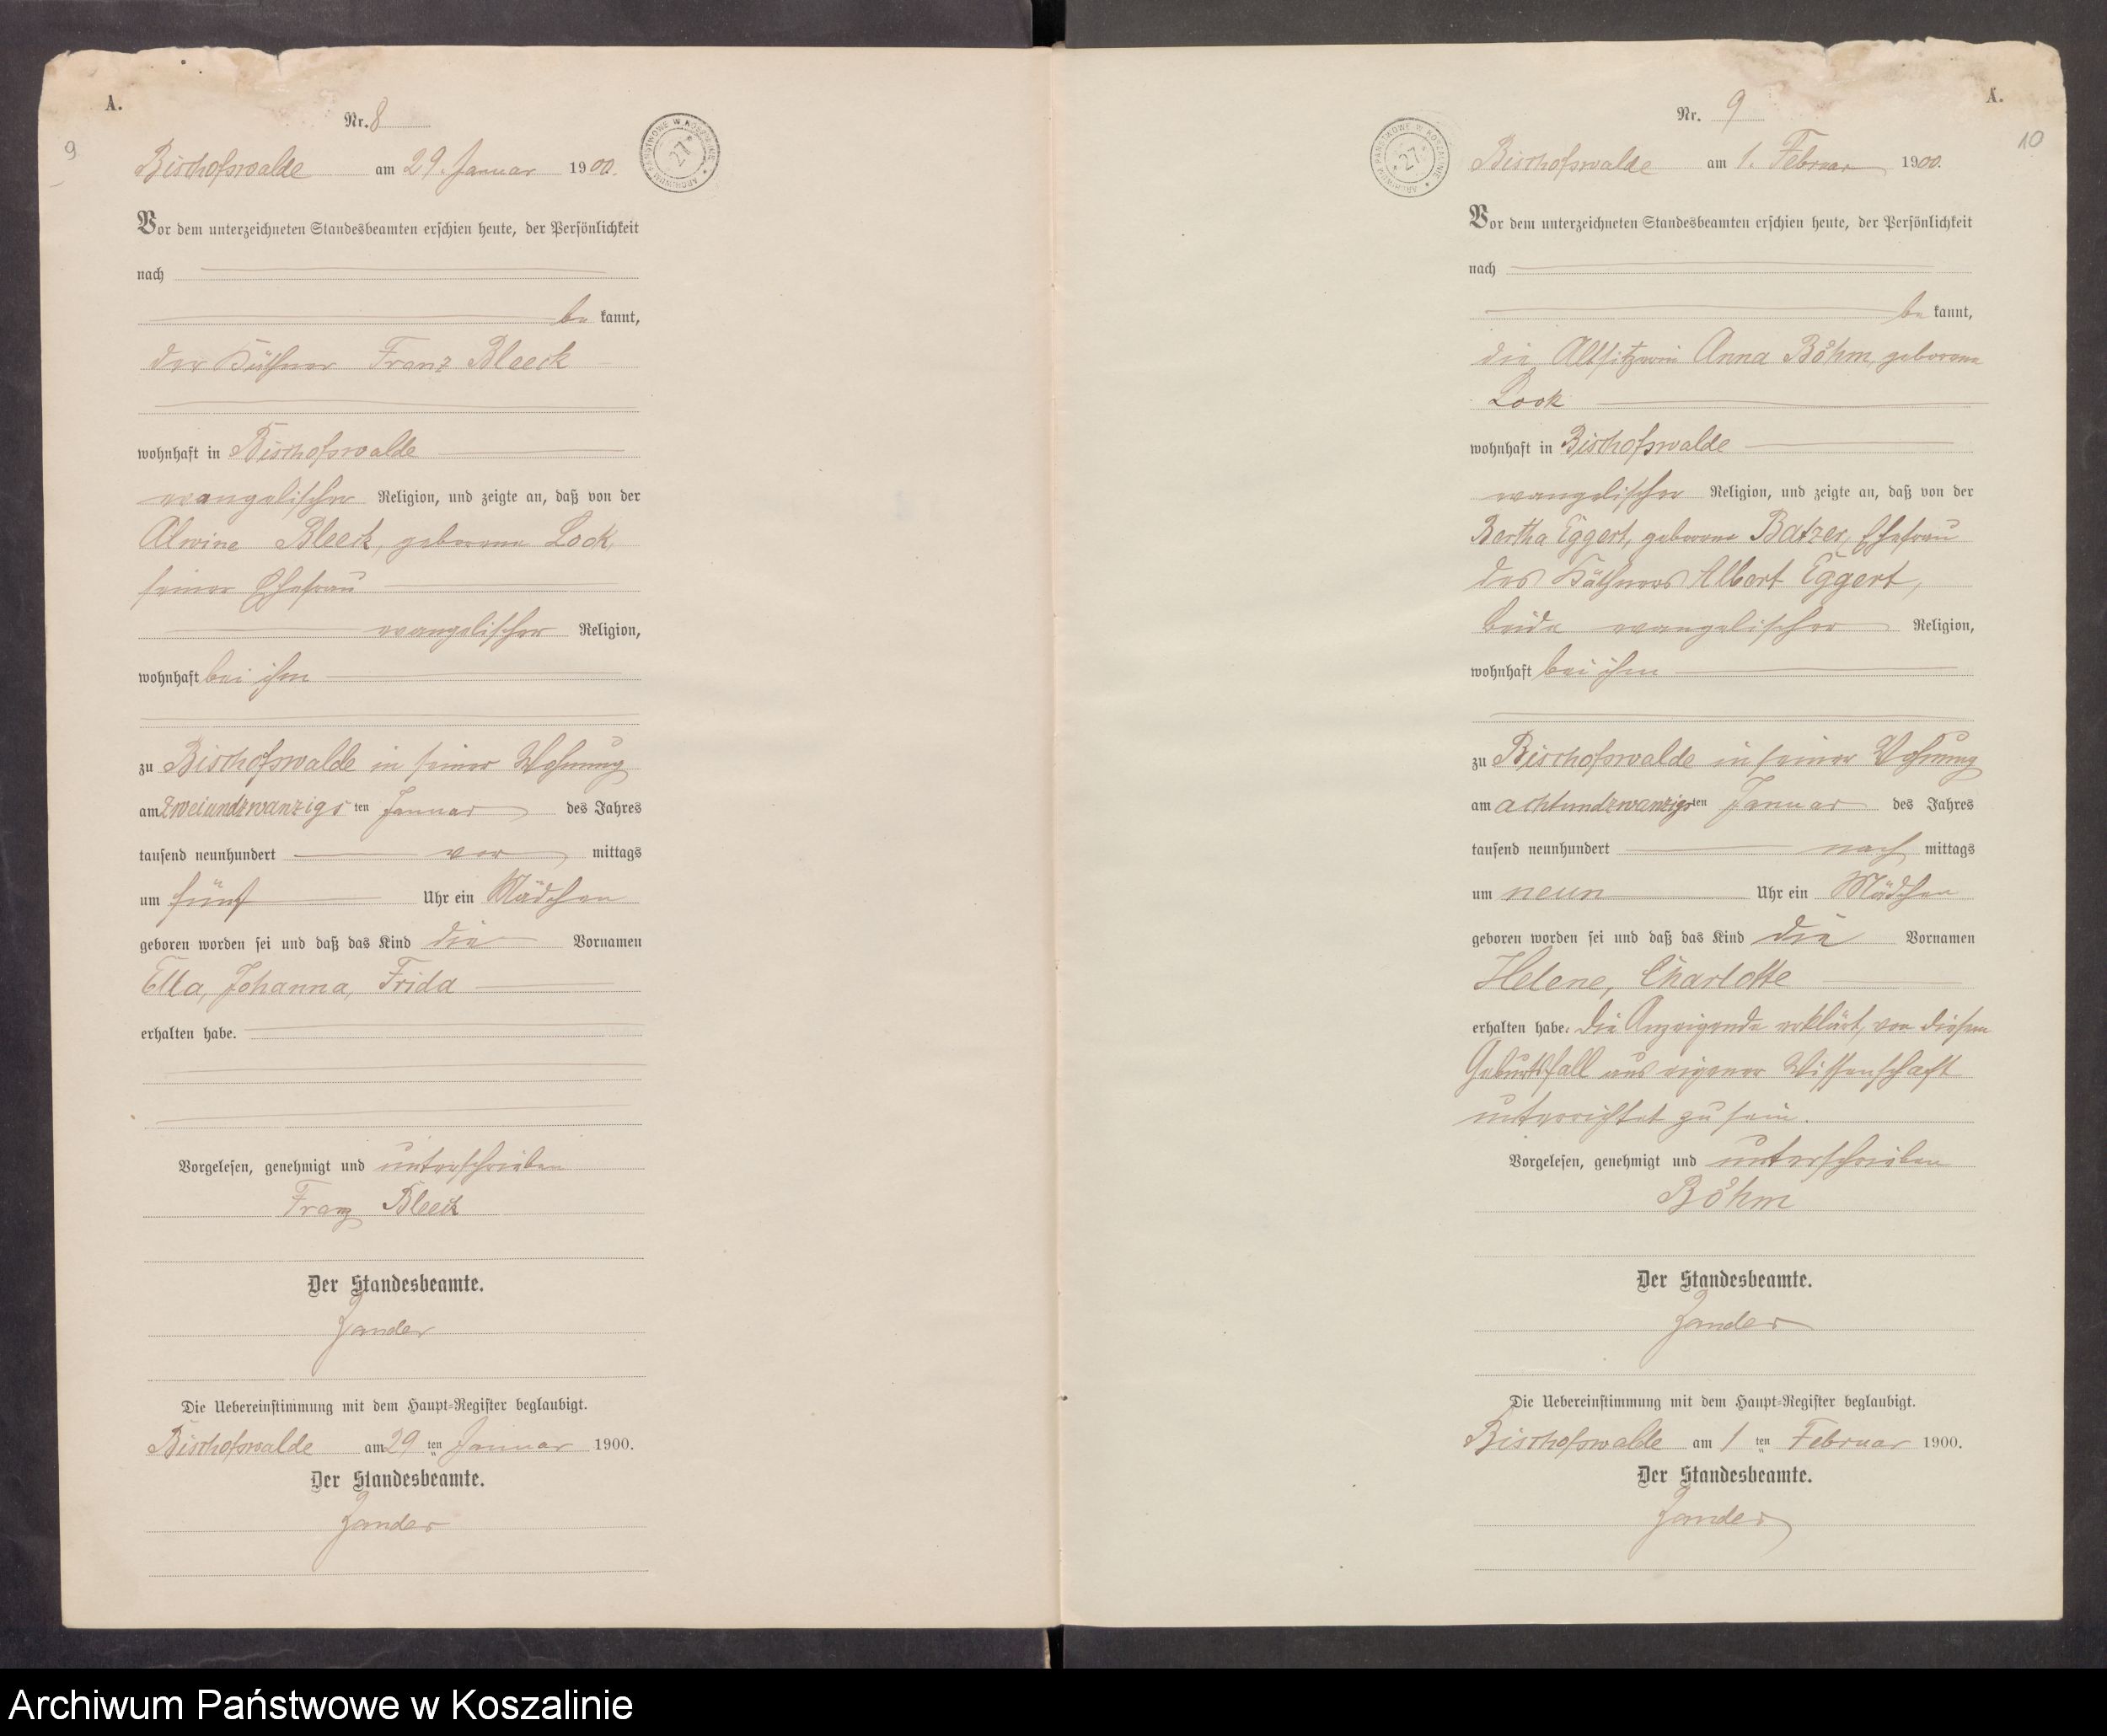 A.
9
Nr. 8
Bischofswalde am 29. Januar 1900.
ARCHIWUM PAŃSTWOWE W KOSZALINIE
27
Vor dem unterzeichneten Standesbeamten erschien heute, der Persönlichkeit
nach
be kannt,
der Käthner Franz Bleeck
wohnhaft in Bischofswalde
evangelischer Religion, und zeigte an, daß von der
Alwine Bleeck, geborene Lock,
seiner Ehefrau
evangelischer Religion,
wohnhaft bei ihm
zu Bischofswalde in seiner Wohnung
am zweiundzwanzigsten Januar des Jahres
tausend neunhundert vor mittags
um fünf Uhr ein Mädchen
geboren worden sei und daß das Kind die Vornamen
Ella, Johanna, Frida
erhalten habe.
Vorgelesen, genehmigt und unterschrieben
Franz Bleeck
Der Standesbeamte.
Zander
Die Uebereinstimmung mit dem Haupt-Register beglaubigt.
Bischofswalde am 29 ten Januar 1900.
Der Standesbeamte.
Zander
A.
10
Nr. 9
ARCHIWUM PAŃSTWOWE W KOSZALINIE
27
Bischofswalde am 1. Februar 1900.
Vor dem unterzeichneten Standesbeamten erschien heute, der Persönlichkeit
nach
be kannt,
die Altsitzerin Anna Böhm, geborene
Look
wohnhaft in Bischofswalde
evangelischer Religion, und zeigte an, daß von der
Bertha Eggert, geborene Batzer, Ehefrau
des Käthners Albert Eggert,
beide evangelischer Religion,
wohnhaft bei ihm
zu Bischofswalde in seiner Wohnung
am achtundzwanzigsten Januar des Jahres
tausend neunhundert nach mittags
um neun Uhr ein Mädchen
geboren worden sei und daß das Kind die Vornamen
Helene, Charlotte
erhalten habe. Die Anzeigende erklärt, von diesem
Geburtsfall aus eigener Wissenschaft
unterrichtet zu sein.
Vorgelesen, genehmigt und unterschrieben
Böhm
Der Standesbeamte.
Zander
Die Uebereinstimmung mit dem Haupt-Register beglaubigt.
Bischofswalde am 1 ten Februar 1900.
Der Standesbeamte.
Zander
Archiwum Państwowe w Koszalinie